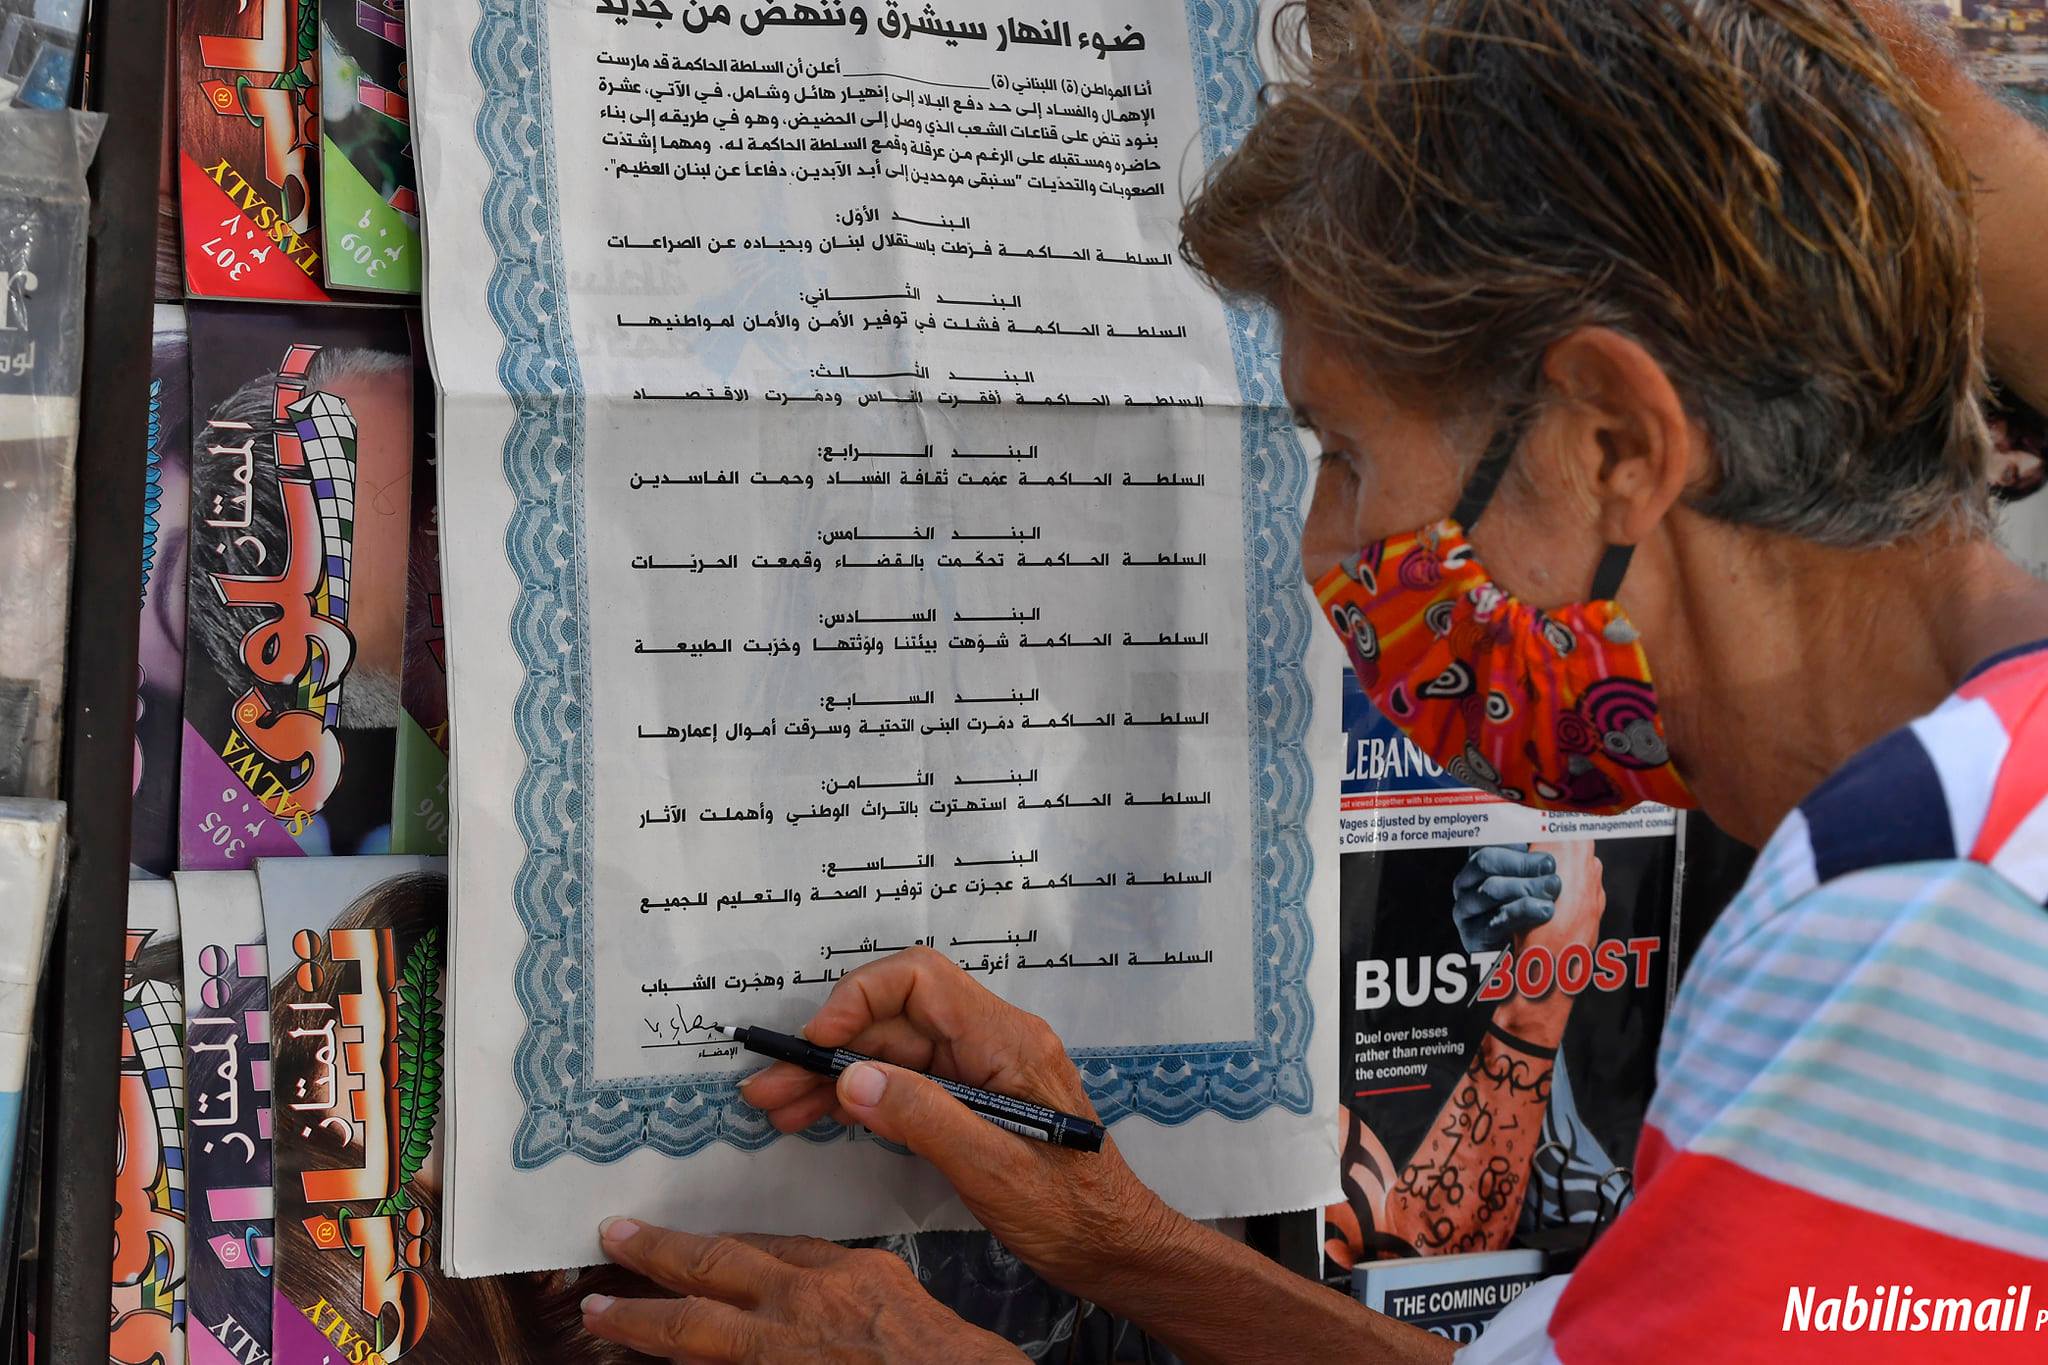 ضوء النهار سيشرق وننهض من جديد
أنا المواطن (ة) اللبناني (ة) ________________ أعلن أن السلطة الحاكمة قد مارست
الإهمال والفساد إلى حد دفع البلاد إلى إنهيار هائل وشامل. في الآتي، عشرة
بنود تنصّ على قناعات الشعب الذي وصل إلى الحضيض، وهو في طريقه إلى بناء
حاضره ومستقبله على الرغم من عرقلة وقمع السلطة الحاكمة له. ومهما إشتدّت
الصعوبات والتحدّيات "سنبقى موحدين إلى أبد الآبدين، دفاعاً عن لبنان العظيم".
البند الأوّل:
السلطة الحاكمة فرّطت باستقلال لبنان وبحياده عن الصراعات
البند الثاني:
السلطة الحاكمة فشلت في توفير الأمن والأمان لمواطنيها
البند الثالث:
السلطة الحاكمة أفقرت الناس ودمّرت الاقتصاد
البند الرابع:
السلطة الحاكمة عمّمت ثقافة الفساد وحمت الفاسدين
البند الخامس:
السلطة الحاكمة تحكّمت بالقضاء وقمعت الحريّات
البند السادس:
السلطة الحاكمة شوّهت بيئتنا ولوّثتها وخرّبت الطبيعة
البند السابع:
السلطة الحاكمة دمّرت البنى التحتية وسرقت أموال إعمارها
البند الثامن:
السلطة الحاكمة استهترت بالتراث الوطني وأهملت الآثار
البند التاسع:
السلطة الحاكمة عجزت عن توفير الصحة والتعليم للجميع
البند العاشر:
السلطة الحاكمة أغرقت وهجّرت الشباب
الإمضاء
TASSALY
307
٣٠٧
309
٣٠٩
الممتاز
سلوى
SALWA
305
٣٠٥
306
الممتاز
الممتاز
تسالي
Wages adjusted by employers
Covid-19 a force majeure?
Crisis management
BUST/BOOST
Duel over losses
rather than reviving
the economy
THE COMING
Nabilismail